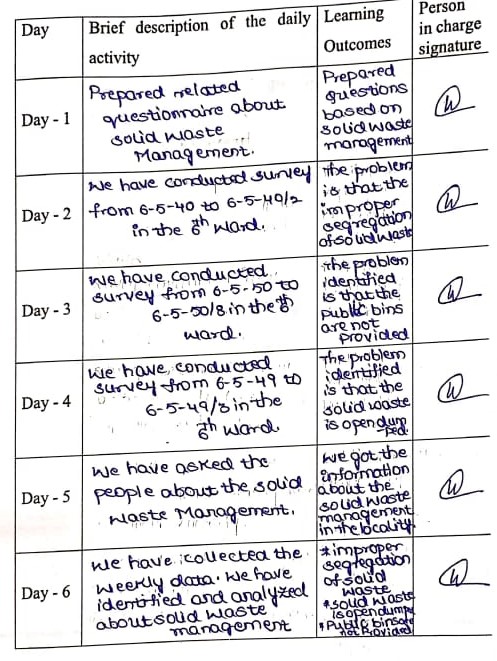 Day
Brief description of the daily
activity
Learning
Outcomes
Person
in charge
signature
Day - 1
Prepared related
questionnaire about
solid waste
Management.
Prepared
questions
based on
solid waste
management
Day - 2
We have conducted survey
from 6-5-40 to 6-5-40/2
in the 6th ward.
The problem
is that the
improper
segregation
of solid waste
Day - 3
We have conducted
survey from 6-5-50 to
6-5-50/8 in the 6th
ward.
The problem
identified
is that the
public bins
are not
provided
Day - 4
We have conducted
survey from 6-5-49 to
6-5-49/3 in the
6th ward.
The problem
identified
is that the
solid waste
is open dum
ped.
Day - 5
We have asked the
people about the solid
waste Management.
We got the
information
about the
solid waste
management
in the locality.
Day - 6
We have collected the
weekly data. We have
identified and analyzed
about solid waste
management
* improper
segregation
of solid
waste
* solid waste
is open dumped
* Public bins are
not provided